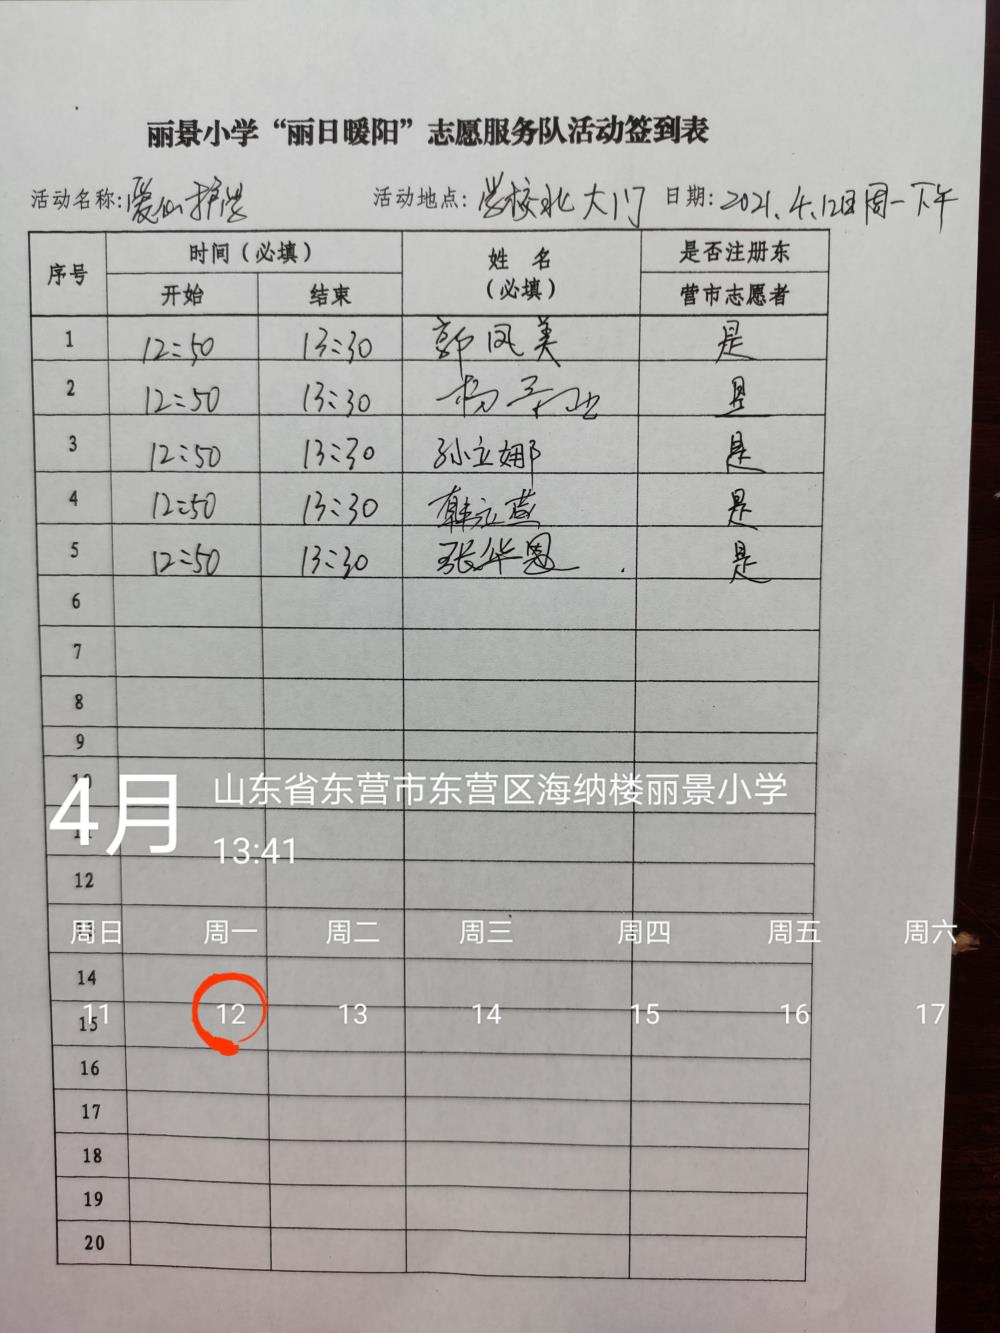 丽景小学“丽日暖阳”志愿服务队活动签到表
活动名称:爱心护学 活动地点:学校北大门 日期:2021.4.12日周一下午
序号 时间(必填) 姓 名 (必填) 是否注册东营市志愿者
开始 结束
1 12:50 13:30 郭凤美 是
2 12:50 13:30 杨 是
3 12:50 13:30 孙立娜 是
4 12:50 13:30 韩元燕 是
5 12:50 13:30 张华恩 是
6
7
8
9
10
4月 山东省东营市东营区海纳楼丽景小学
11
13:41
12
13
周日 周一 周二 周三 周四 周五 周六
14
11 12 13 14 15 16 17
15
16
17
18
19
20